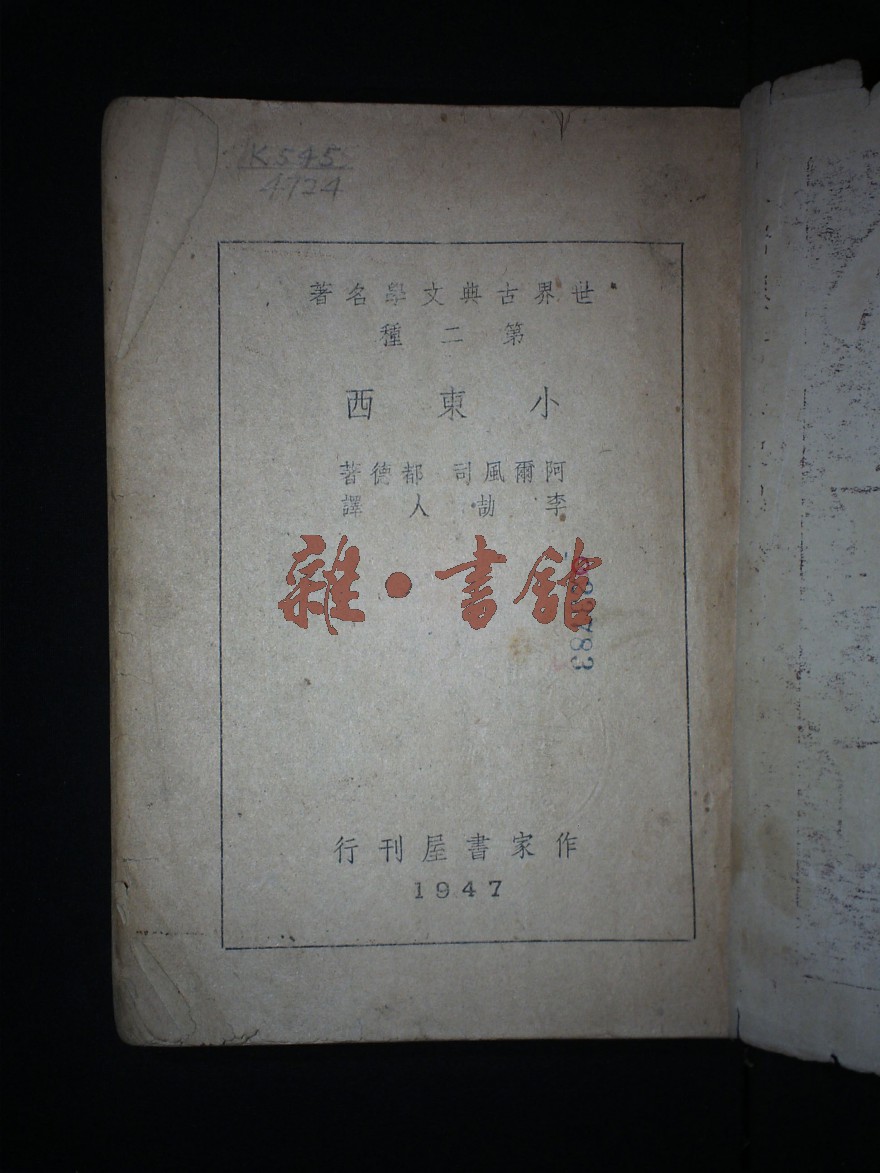 K545
4724
世界古典文學名著
第二種
小東西
阿爾風司 都德著
李劼人譯
雜·書館
作家書屋刊行
1947